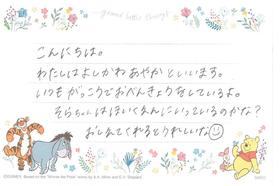 grand little things!
こんにちは。
わたしはよしかわあやかといいます。
いつもがっこうでおべんきょうをしているよ。
そらちゃんはほいくえんにいっているのかな?
おしえてくれるとうれしいな☺
©DISNEY. Based on the "Winnie the Pooh" works by A.A. Milne and E.H. Shepard.